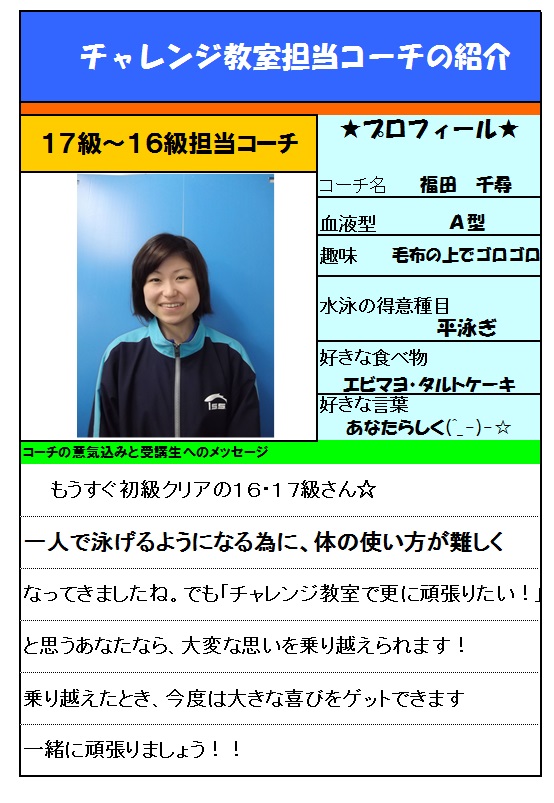 チャレンジ教室担当コーチの紹介
17級～16級担当コーチ
★プロフィール★
コーチ名 福田 千尋
血液型 A型
趣味 毛布の上でゴロゴロ
水泳の得意種目
平泳ぎ
好きな食べ物
エビマヨ・タルトケーキ
好きな言葉
あなたらしく(^_-)-☆
コーチの意気込みと受講生へのメッセージ
もうすぐ初級クリアの16・17級さん☆
一人で泳げるようになる為に、体の使い方が難しく
なってきましたね。でも「チャレンジ教室で更に頑張りたい！」
と思うあなたなら、大変な思いを乗り越えられます！
乗り越えたとき、今度は大きな喜びをゲットできます
一緒に頑張りましょう！！